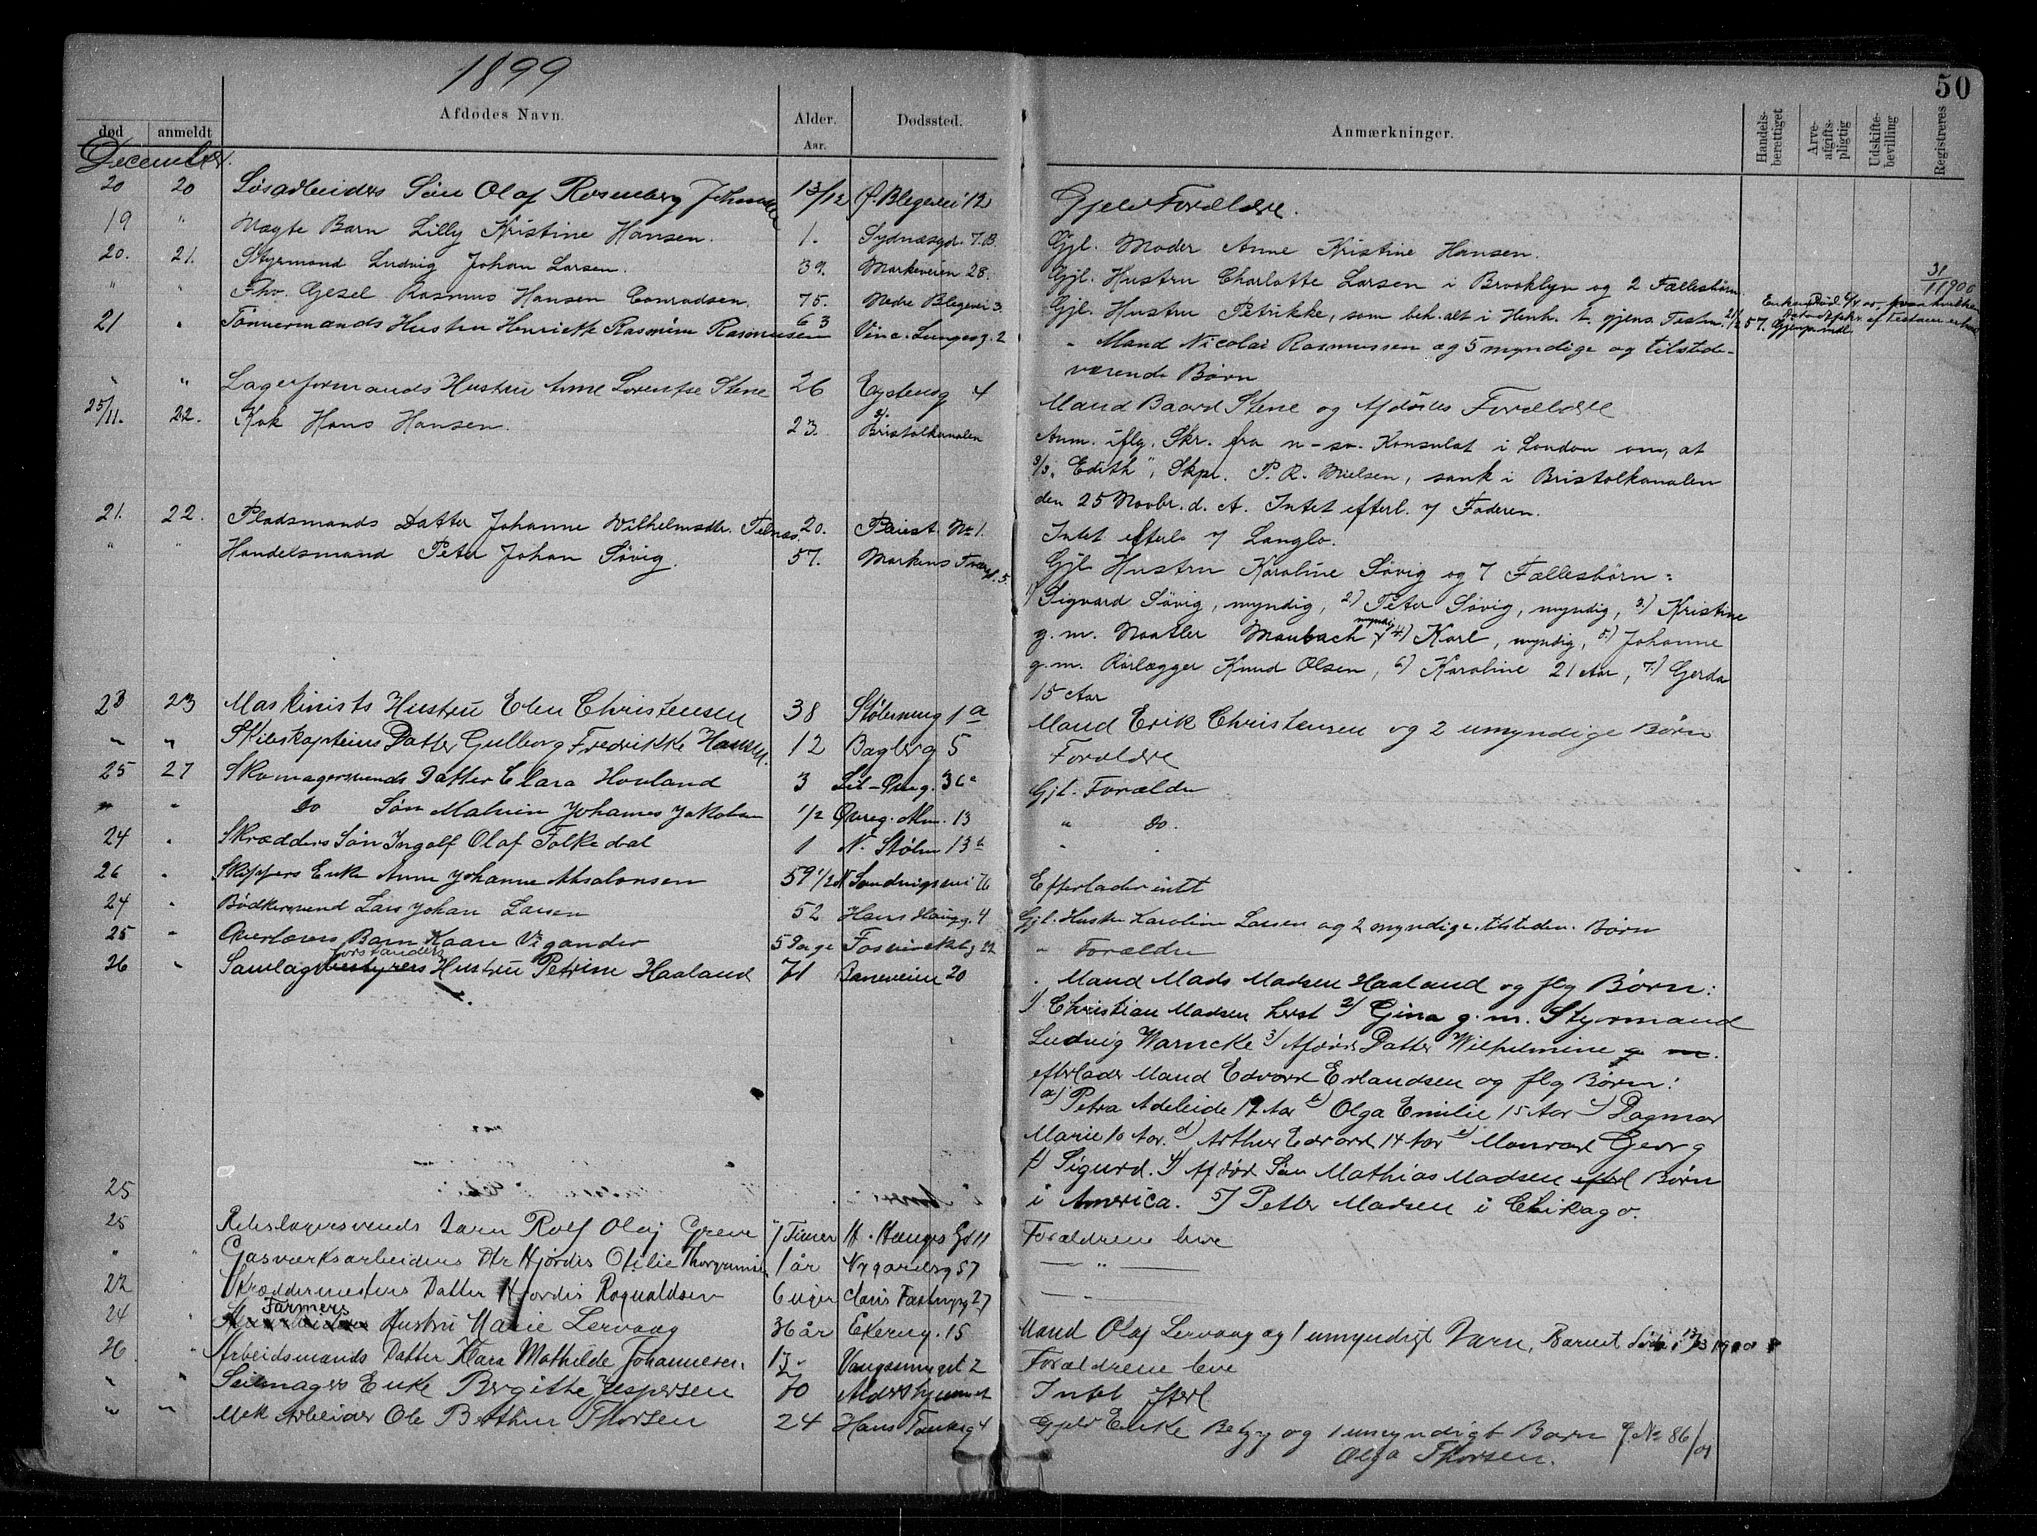 1899
50
død anmeldt Afdødes Navn. Alder. Aar. Dødssted. Anmærkninger. Handels-berettiget Arve-afgifts-pligtig Udskifte-bevilling Registreres
December.
20 20 Løsarbeiders Søn Olaf Rosenberg 13/12 Ø. Blegevei 12 Gjelv Forældre.
19 " Vægte Barn Lilly Kristine Hansen. 1. Sydnæsgd. 7.B. Gjl. Moder Anne Kristine Hansen.
20. 21. Styrmand Ludvig Johan Larsen. 39. Markeveien 28. Gjl. Hustru Charlotte Larsen i Brooklyn og 2 Fællesbørn 31/1 1900
" " Fhv. Gesel Rasmus Hansen Conradsen. 75. Nedre Blegevei 3. Gjl. Hustru Petrikke, som beh. alt i Henh. t. gjens. Testm. 57.
21 " Tømmermands Hustru Henrikke Rasmine Rasmussen 63 Vinc. Lungesg. 2 " Mand Nicolai Rasmussen og 5 myndige og tilstede-
værende Børn
" " Lagerformands Hustru Anne Lorentse Stene 26 Eystensg 4 Mand Baard Stene og Afdødes Forældre
25/11. 22. Kok Hans Hansen. 23. Bristolkanalen Anm. iflg. Skr. fra n-sv. Konsulat i London om, at
S/S "Edith", Skpr. P. R. Nielsen, sank i Bristolkanalen
den 25 Novbr. d. A. Intet efterl. 7 Faderen.
21. 22. Pladsmands Datter Johanne Vilhelmsdtr. 20. Pleiest. No 1. Intet efterl. 7 Langlo.
" " Handelsmand Peter Johan Søvig. 57. Markens 5. Gjl. Hustru Karoline Søvig og 7 Fællesbørn:
1) Sigvard Søvig, myndig, 2) Peter Søvig, myndig, 3) Kristine
g. m. Maubach myndig, 4) Karl, myndig, 5) Johanne
g. m. Rørlægger Knud Olsen, 6) Karoline 21 Aar, 7) Gerda
15 Aar
23 23 Maskinists Hustru Elen Christensen 38 Stølensmug 1a Mand Erik Christensen og 2 umyndige Børn
" " Skibskapteins Datter Gulborg Fredrikke Hansen. 12 Bagberg 5 Forældre
25 27 Skomagersvends Datter Clara Hovland 3 36a Gjl. Forældre
" " Do Søn Malvin Johannes Jakobsen 1/2 Øvreg. Alm. 13 " Do.
24 " Skrædders Søn Ingolf Olaf Folkedal 1 N. Stølen 13b " "
26 " Skippers Enke Anne Johanne Absalonsen 59 1/2 N Sandvigsvei 76 Efterlader intt
24 " Bødkersvend Lars Johan Larsen 52 Hans Haugg. 4 Gjl. Hustru Karoline Larsen og 2 myndige tilsteden. Børn
25 " Overlærers Barn Kaare Vigander 5 Dage Fosswinckelsg 22 " Forældre
26 " Samlagsbestyrers forstanders Hustru Petrine Haaland 71 Baneveien 20 " Mand Mads Madsen Haaland og flg Børn:
1) Christian Madsen 2) Gina g. m. Styrmand
Ludvig Warncke 3) Afdøde Datter Wilhelmine g m.
efterlader Mand Edvard Erlandsen og flg Børn:
a) Petra Adeleide 19 Aar b) Olga Emilie 15 Aar c) Dagmar
Marie 10 Aar. d) Arthur Edvard 14 Aar e) Monrad Georg
f) Sigurd. 4) Afdød Søn Mathias Madsen efterl Børn
25 i America. 5) Petter Madsen i Chikago.
25 Rebslagersvends Barn Rolf Olaj Grene 7 Timer H. Hauges Gd 11 Forældrene leve
" " Gasværksarbeiders Dtr Hjørdis Otilie 1 år Nygardsg 57 — " —
22 Skræddermesters Datter Hjørdis Rognaldsen 6 uger Claus Fastingsg 27 — " —
24 Farmers Hustru Marie Lervaag 36 år Ekerng. 15 Mand Olaj Lervaag og 1 umyndigt Barn, Barnet døde i 1900
26 " Arbeidsmands Datter Klara Mathilde Johannesen 1 1/2 " Vangsmuget 2 Forældrene leve
" " Seilmagers Enke Bergitte Jespersen 70 Aldershjemmet Intet efterl
" " Mek Arbeider Ole Berthin Thorsen 24 Hans Tanksg 4 Gjelv Enke Betzy og 1 umyndigt Barn J. No 86/01
Olga Thorsen.